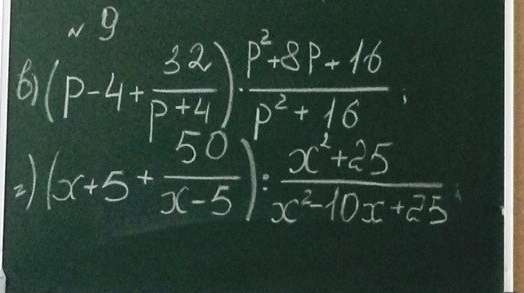 № 9
в) (p-4+32/(p+4)) · (p²+8p+16)/(p²+16);
г) (x+5+50/(x-5)) : (x²+25)/(x²-10x+25)